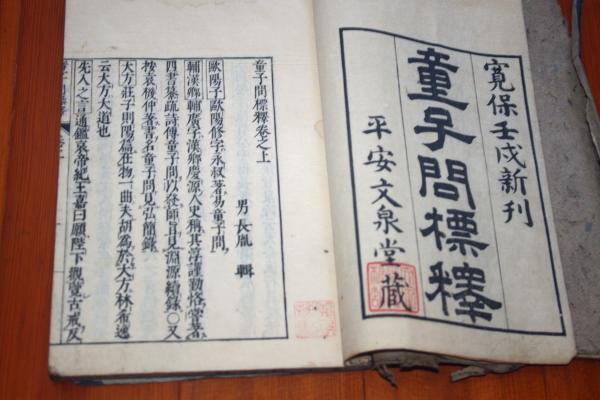 寛保壬戌新刊
童子問標釋
平安文泉堂藏
童子問標釋卷之上
男長胤輯
歐陽子歐陽修字永叔著易童子問
輔漢鄉輔廣字漢鄉慶源人史稱其淳謹勤恪嘗著
四書纂疏詩傳童子問以發師旨見淵源續錄○又
按袁機仲著書名童子問見弘簡錄
大方莊子則陽篇在物一曲夫胡為於大方林希逸
云大方大道也
先人之言通鑑哀帝紀王嘉曰願陛下觀覽古戒反